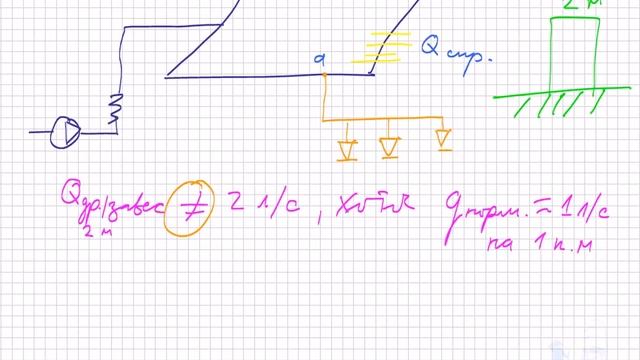 2 м
a
Q спр.
Q др/завес ≠ 2 л/с, хотя q норм. = 1 л/с
2 м
на 1 п.м